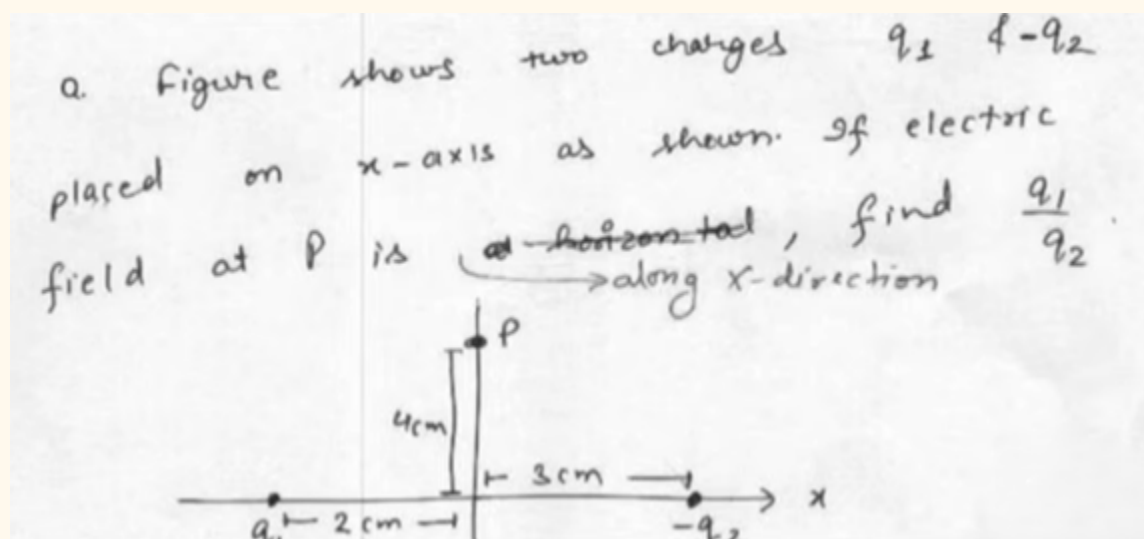 Q. Figure shows two charges q1 & -q2
placed on x-axis as shown. If electric
field at P is at horizontal, find q1/q2.
along x-direction
P
4cm
3cm
x
q1 2cm -q2